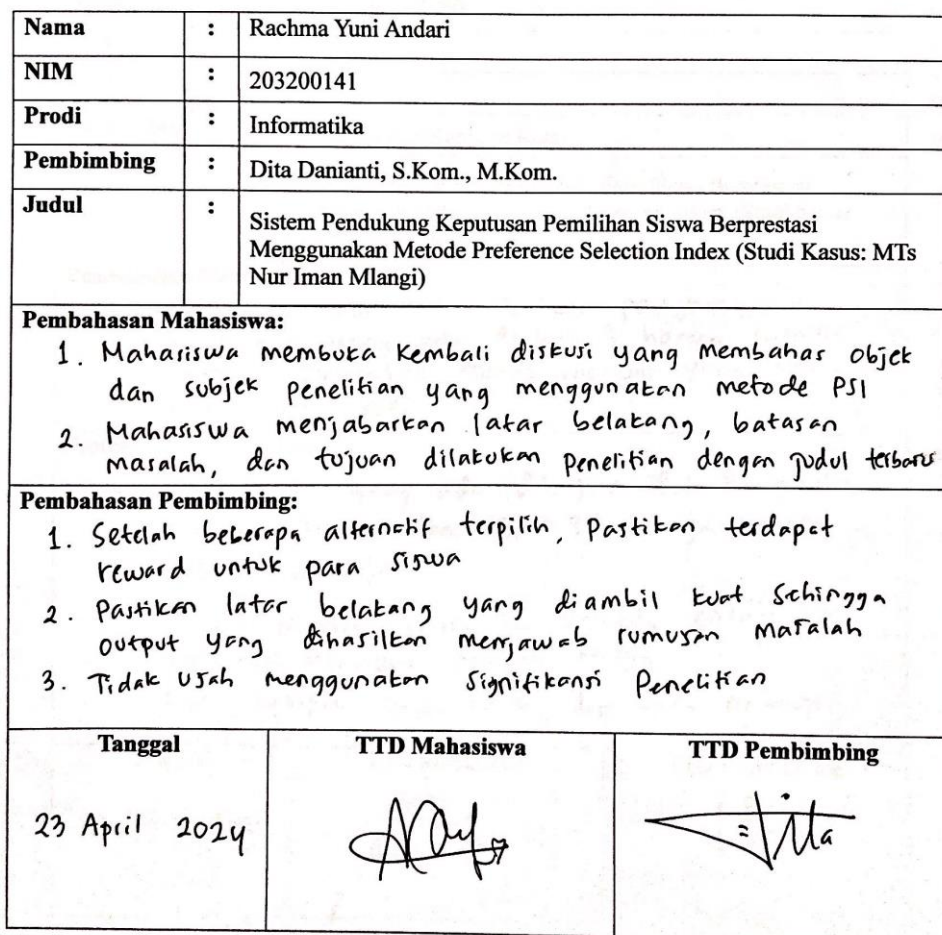 Nama : Rachma Yuni Andari
NIM : 203200141
Prodi : Informatika
Pembimbing : Dita Danianti, S.Kom., M.Kom.
Judul : Sistem Pendukung Keputusan Pemilihan Siswa Berprestasi
Menggunakan Metode Preference Selection Index (Studi Kasus: MTs
Nur Iman Mlangi)
Pembahasan Mahasiswa:
1. Mahasiswa membuka kembali diskusi yang membahas objek
dan subjek penelitian yang menggunakan metode PSI
2. Mahasiswa menjabarkan latar belakang, batasan
masalah, dan tujuan dilakukan penelitian dengan judul terbaru
Pembahasan Pembimbing:
1. Setelah beberapa alternatif terpilih, pastikan terdapat
reward untuk para siswa
2. Pastikan latar belakang yang diambil kuat sehingga
output yang dihasilkan menjawab rumusan masalah
3. Tidak usah menggunakan signifikansi Penelitian
Tanggal TTD Mahasiswa TTD Pembimbing
23 April 2024